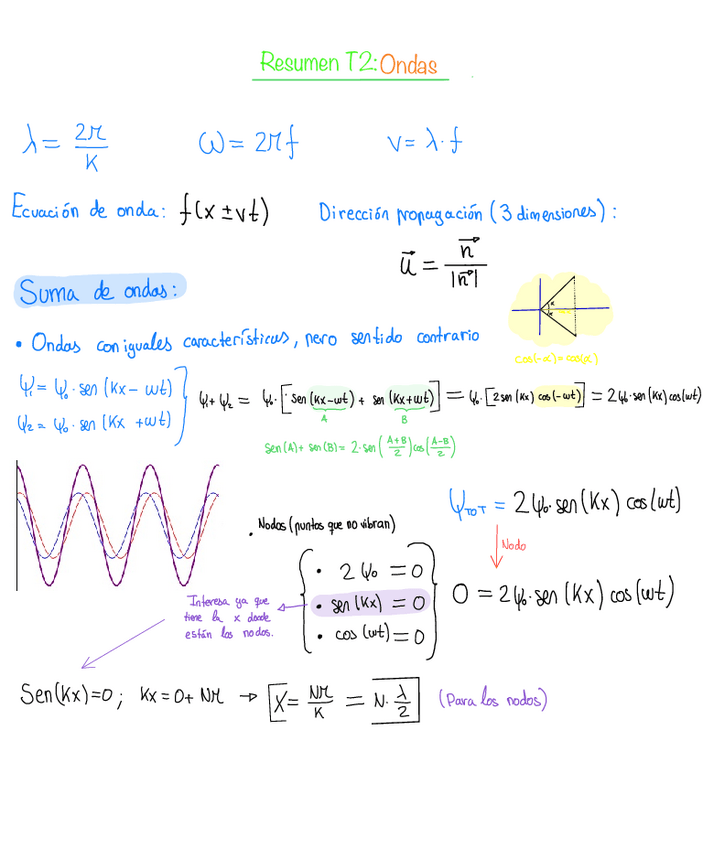 Resumen T2: Ondas
λ = 2π/K    ω = 2πf    v = λ·f
Ecuación de onda: f(x ± vt)    Dirección propagación (3 dimensiones):
u⃗ = n⃗/|n⃗|
Suma de ondas:
α
α
cos(-α)=cos(α)
• Ondas con iguales características, pero sentido contrario
Ψ₁ = Ψ₀·sen (Kx - ωt)
Ψ₂ = Ψ₀·sen (Kx + ωt)
Ψ₁+Ψ₂ = Ψ₀·[sen (Kx-ωt) + sen (Kx+ωt)] = Ψ₀·[2sen (Kx) cos(-ωt)] = 2Ψ₀·sen(Kx)cos(ωt)
A    B
Sen(A)+ sen(B)= 2·sen((A+B)/2)cos((A-B)/2)
Ψ_TOT = 2Ψ₀·sen(Kx) cos(ωt)
• Nodos (puntos que no vibran)
Nodo
• 2Ψ₀ = 0
• sen(Kx) = 0
• cos(ωt) = 0
0 = 2Ψ₀·sen(Kx) cos(ωt)
Interesa ya que
tiene la x donde
están los nodos.
Sen(Kx)=0; Kx = 0+ Nπ → X = Nπ/K = N·λ/2 (Para los nodos)